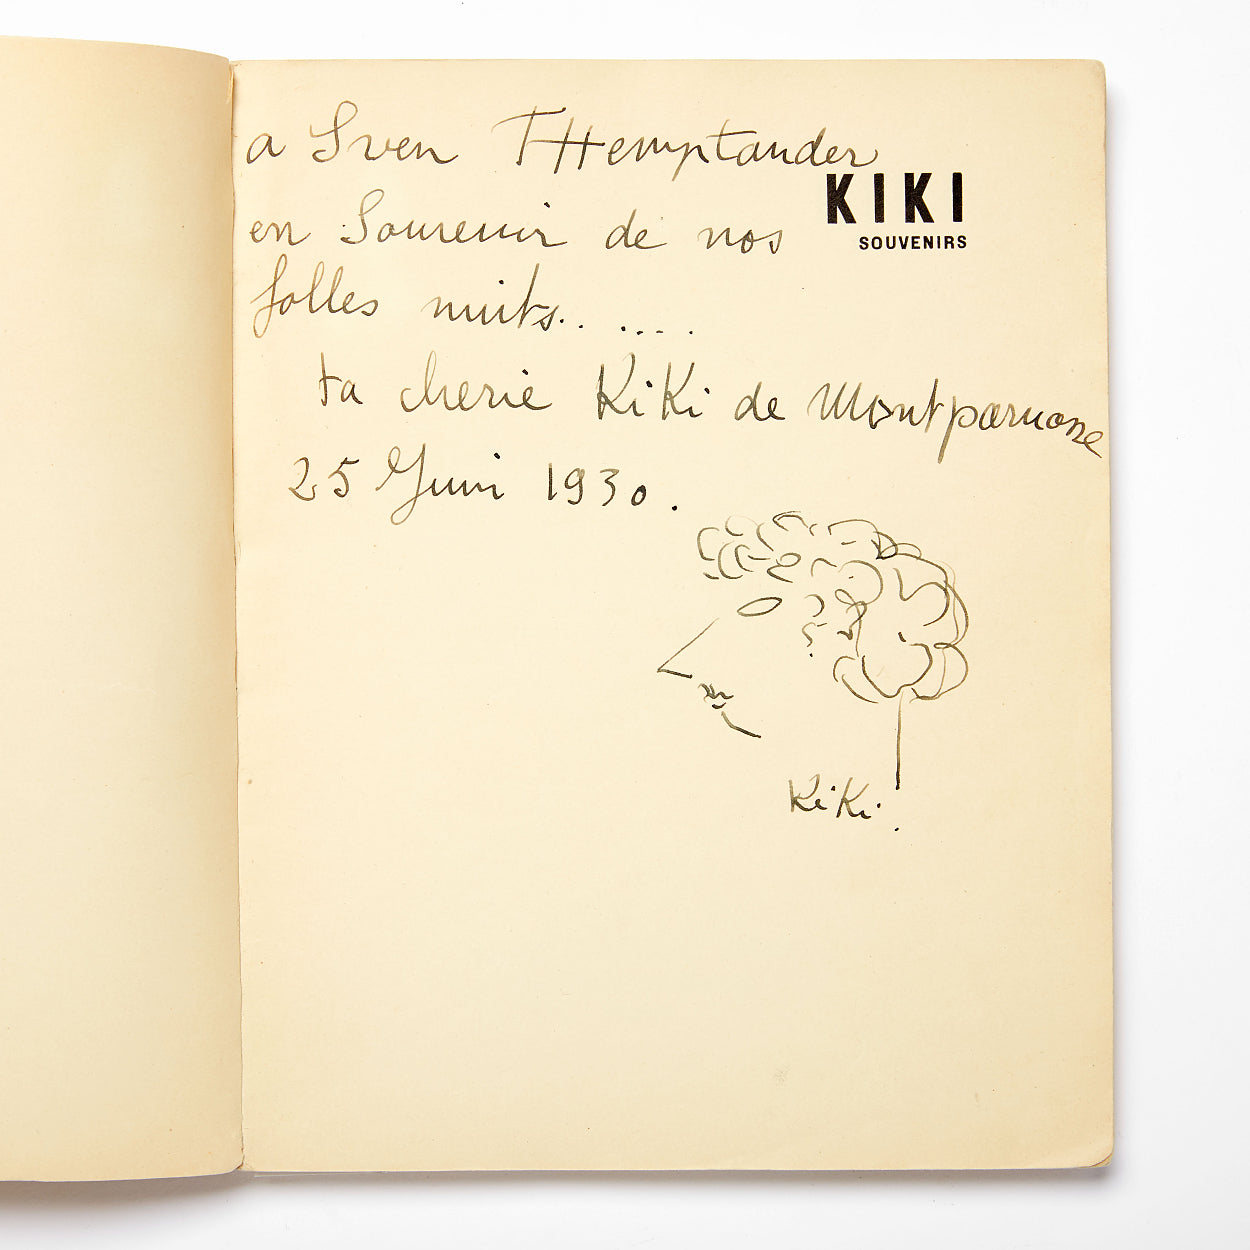 a Sven THemptander
KIKI
SOUVENIRS
en Souvenir de nos
folles nuits.. ....
ta cherie KiKi de Montparnasse
25 Juin 1930.
KiKi.